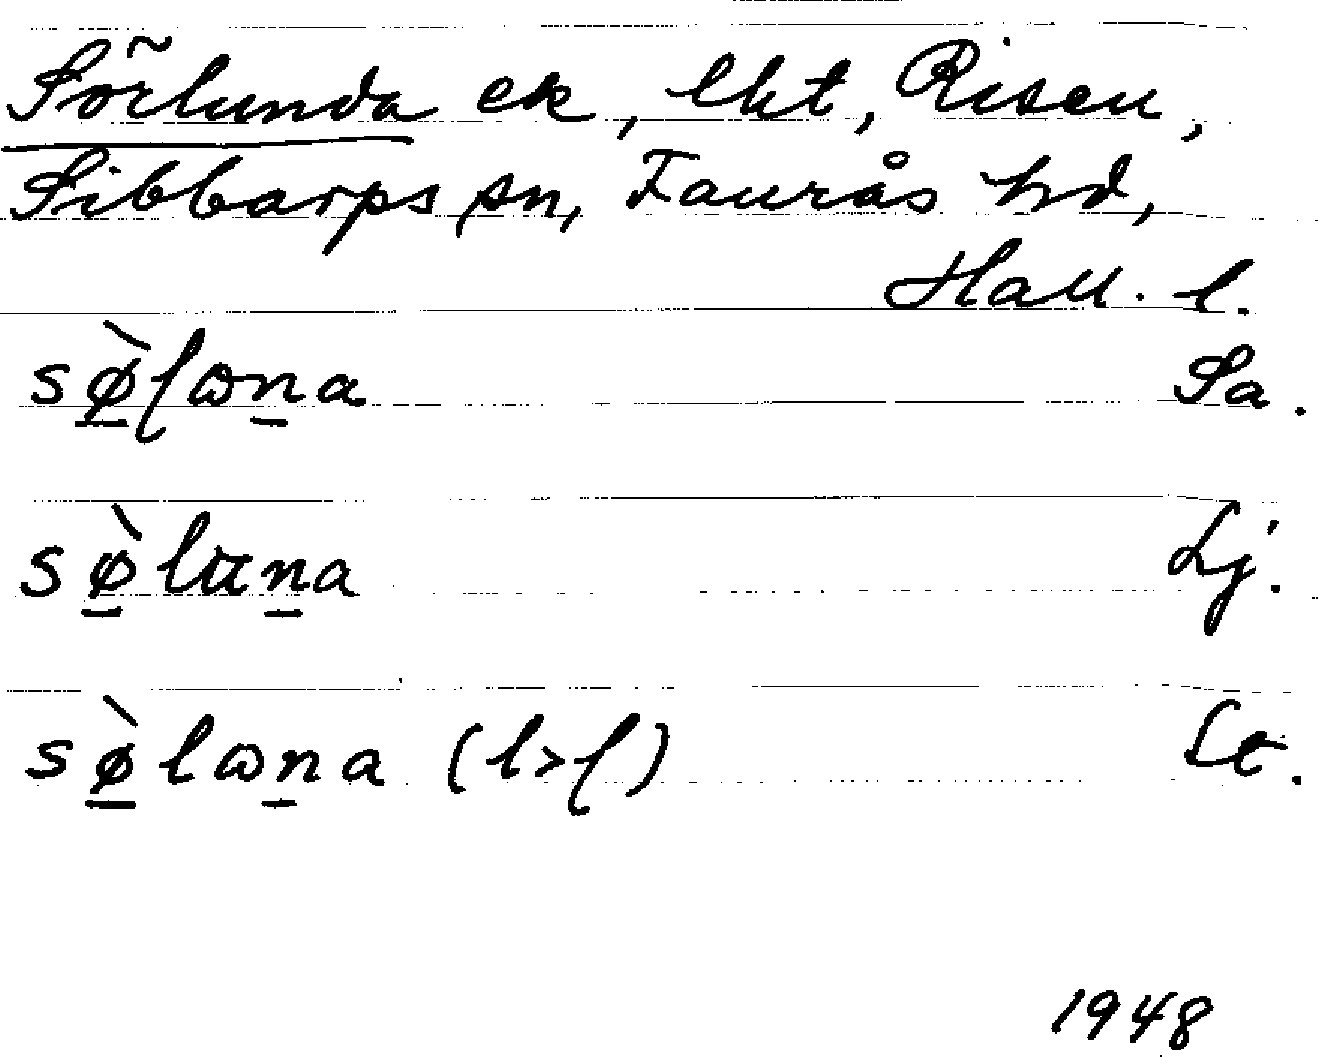 Sörlunda ek, lht, Risen,
Sibbarps sn, Faurås hd,
Hall. l.
sø̲̀ɭɷn̲a Sa.
sø̲̀lɑn̲a Lj.
sø̲̀lɷn̲a (l>ɭ) Lt.
1948